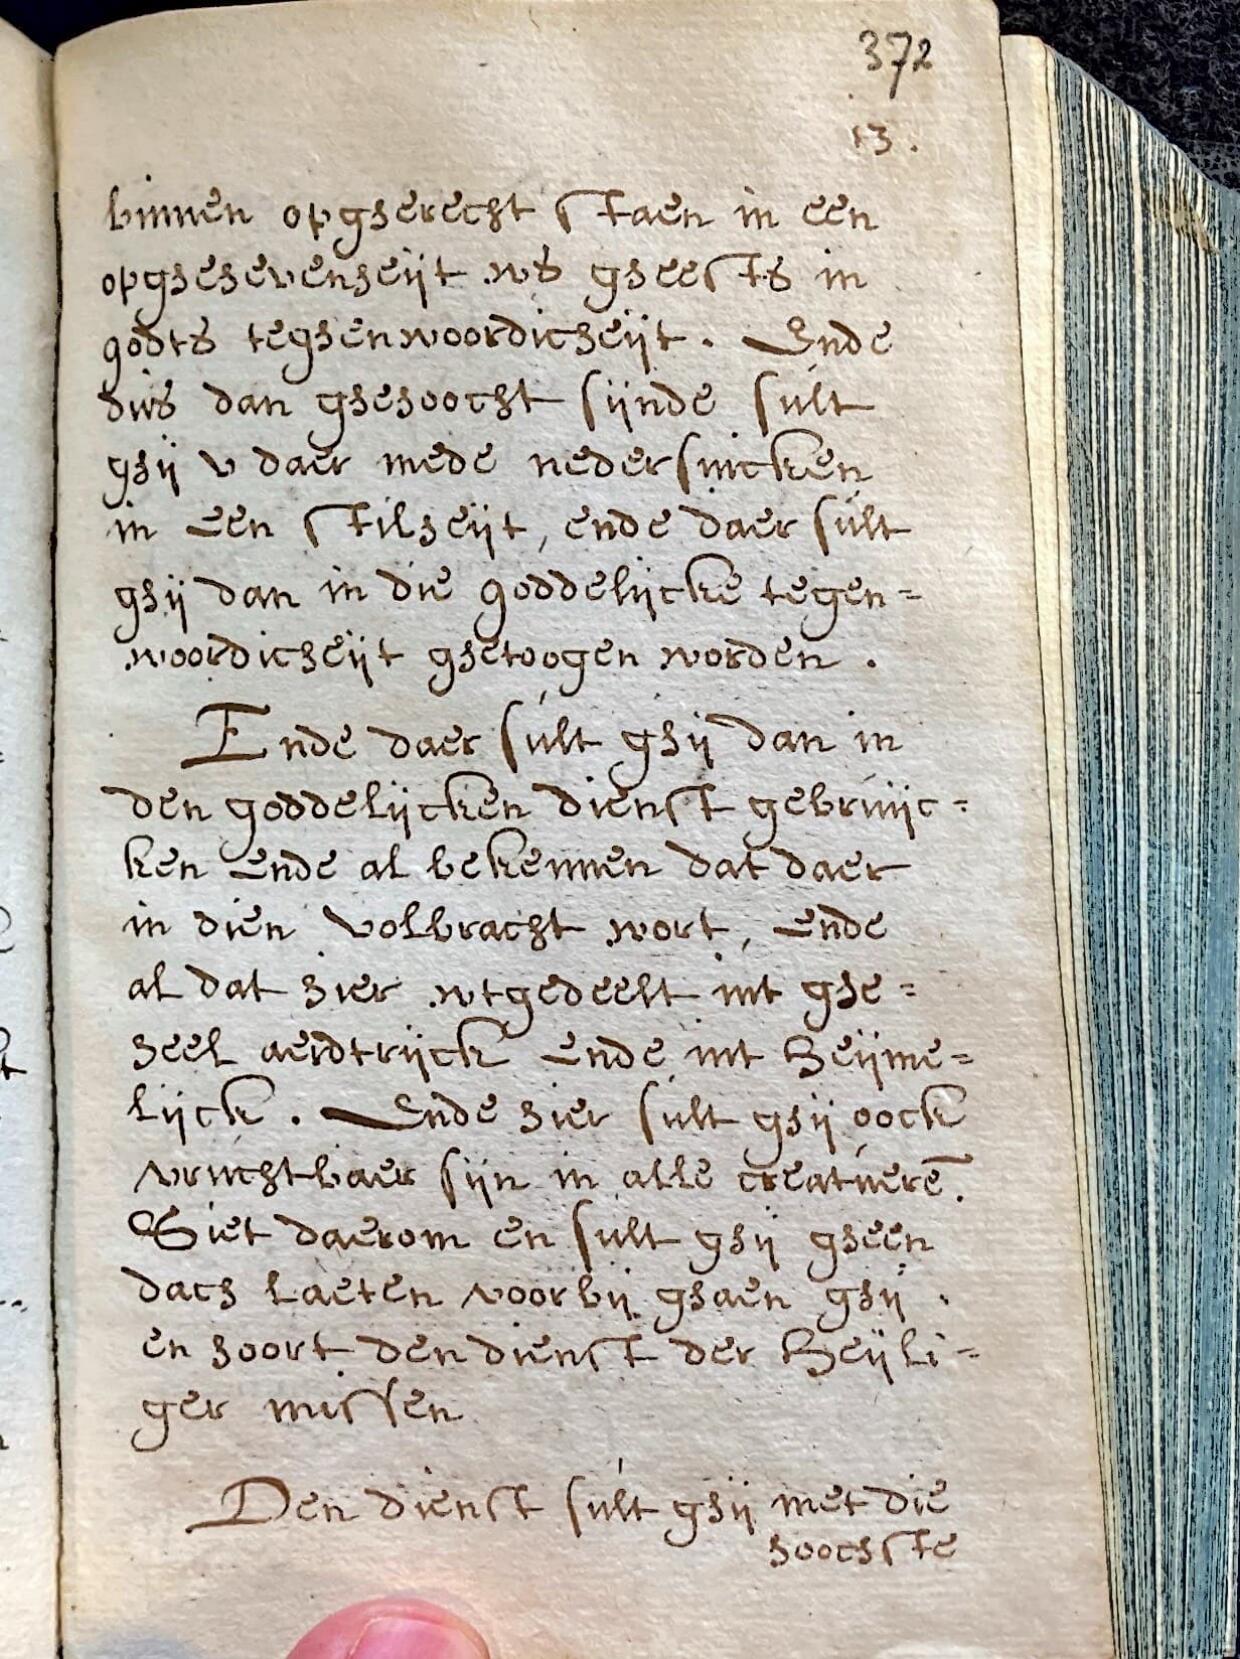 372
13.
binnen opgherecht staen in een
opghehevenheijt ws gheests in
godts teghenwoordicheijt. Ende
dus dan ghehoocht sijnde sult
ghij v daer mede nedersincken
in een stilheijt, ende daer sult
ghij dan in die goddelijcke tegen=
woordicheijt ghetoogen worden.
Ende daer sult ghij dan in
den goddelijcken dienst gebruijc=
ken ende al bekennen dat daer
in dien volbracht wort, ende
al dat hier wtgedeelt int ghe=
heel aerdtrijck ende int heijme=
lijck. Ende hier sult ghij oock
vruchtbaer sijn in alle creatuerē.
Siet daerom en sult ghij gheen
dach laeten voorbij ghaen ghij
en hoort den dienst der heijli=
ger missen
Den dienst sult ghij met die
hoochste